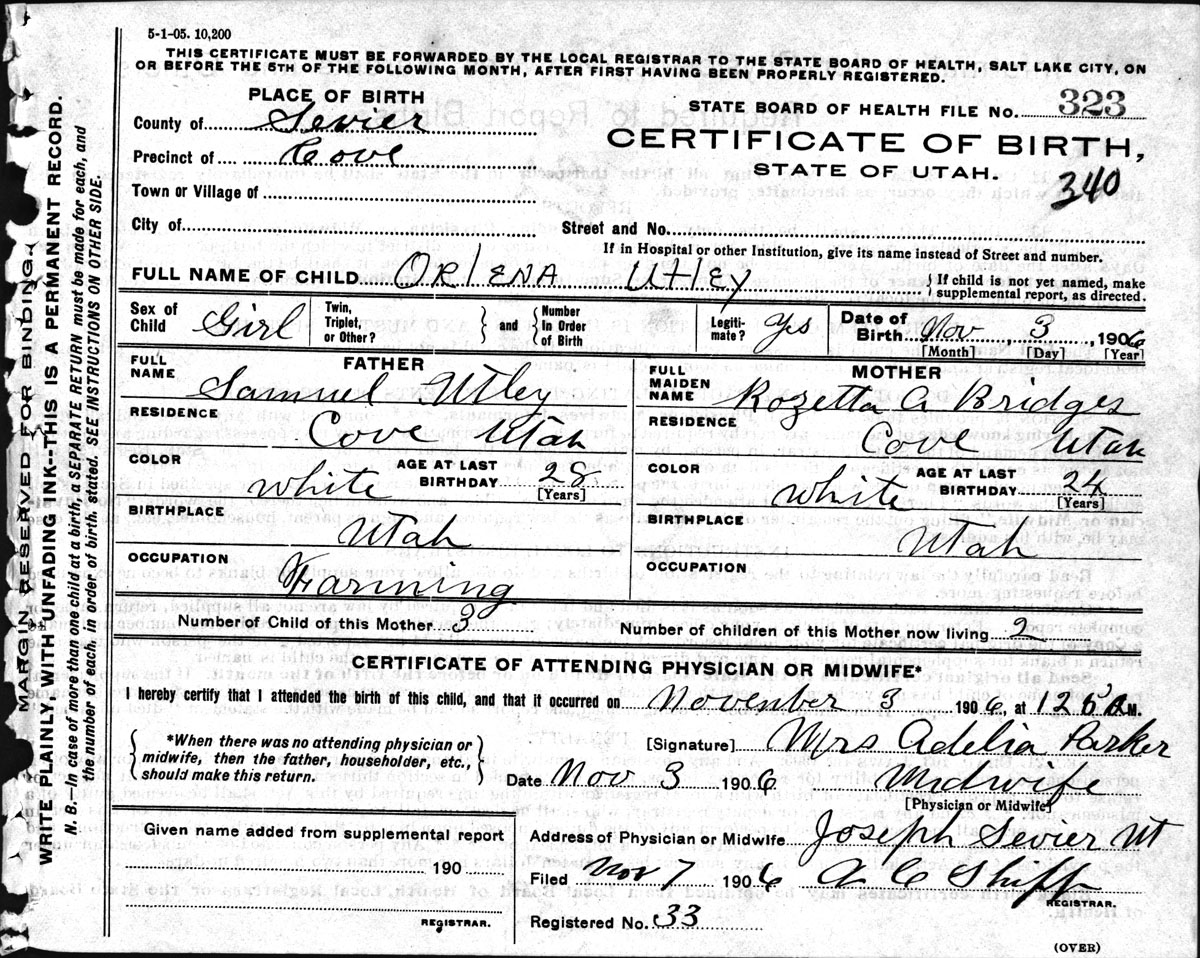 5-1-05. 10,200
THIS CERTIFICATE MUST BE FORWARDED BY THE LOCAL REGISTRAR TO THE STATE BOARD OF HEALTH, SALT LAKE CITY, ON
OR BEFORE THE 5TH OF THE FOLLOWING MONTH, AFTER FIRST HAVING BEEN PROPERLY REGISTERED.
MARGIN RESERVED FOR BINDING.
WRITE PLAINLY, WITH UNFADING INK--THIS IS A PERMANENT RECORD.
N. B.—In case of more than one child at a birth, a SEPARATE RETURN must be made for each, and
the number of each, in order of birth, stated. SEE INSTRUCTIONS ON OTHER SIDE.
PLACE OF BIRTH
County of Sevier
Precinct of Cove
Town or Village of
City of
STATE BOARD OF HEALTH FILE No. 323
CERTIFICATE OF BIRTH,
STATE OF UTAH.
340
Street and No.
If in Hospital or other Institution, give its name instead of Street and number.
FULL NAME OF CHILD ORLENA UtlEy { If child is not yet named, make
supplemental report, as directed.
Sex of Child Girl
Twin, Triplet, or Other? } and { Number In Order of Birth
Legiti-mate? Yes
Date of Birth Nov 3, 1906
[Month] [Day] [Year]
FATHER
FULL NAME Samuel Utley
RESIDENCE
Cove Utah
COLOR white AGE AT LAST BIRTHDAY 28
[Years]
BIRTHPLACE
Utah
OCCUPATION
Farming
MOTHER
FULL MAIDEN NAME Rozetta A Bridges
RESIDENCE
Cove Utah
COLOR white AGE AT LAST BIRTHDAY 24
[Years]
BIRTHPLACE
Utah
OCCUPATION
Number of Child of this Mother 3 Number of children of this Mother now living 2
CERTIFICATE OF ATTENDING PHYSICIAN OR MIDWIFE*
I hereby certify that I attended the birth of this child, and that it occurred on November 3 1906, at 1250 A M.
{ *When there was no attending physician or
midwife, then the father, householder, etc.,
should make this return. }
[Signature] Mrs Adelia Parker
Date Nov 3 1906 Midwife
[Physician or Midwife]
Given name added from supplemental report
190
REGISTRAR.
Address of Physician or Midwife Joseph Sevier Ut
Filed Nov 7 1906 A C Shipp
REGISTRAR.
Registered No. 33
(OVER)